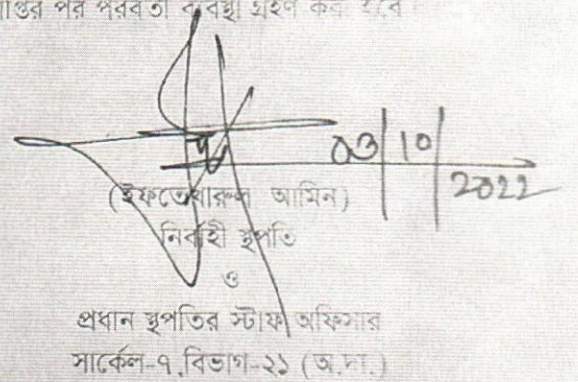 পর পরবর্তী ব্যবস্থা গ্রহণ করা হবে
03|10|2022
(ইফতেখারুল আমিন)
নির্বাহী স্থপতি
ও
প্রধান স্থপতির স্টাফ অফিসার
সার্কেল-৭,বিভাগ-২১ (অ.দা.)